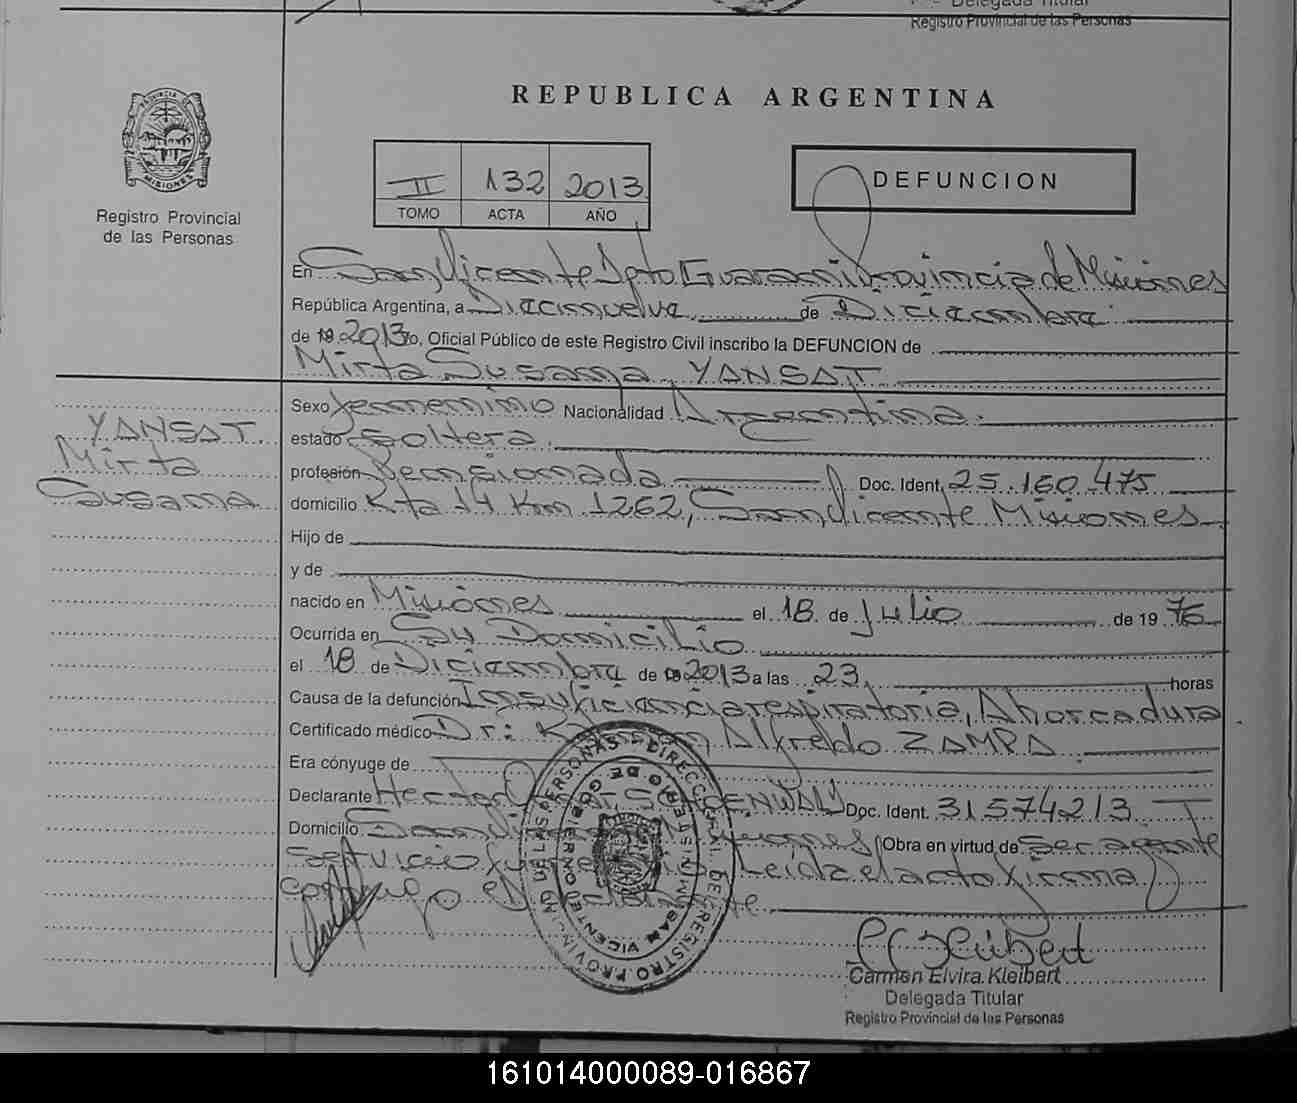 Delegada Titular
Registro Provincial de las Personas
PROVINCIA DE
MISIONES
Registro Provincial
de las Personas
REPUBLICA ARGENTINA
II 132 2013
TOMO ACTA AÑO
DEFUNCION
En San Vicente Dpto Guarani Provincia de Misiones
República Argentina, a Diecinueve de Diciembre
de 19 2013 yo, Oficial Público de este Registro Civil inscribo la DEFUNCION de
Mirta Susana YANSAT
YANSAT
Mirta
Susana
Sexo femenino Nacionalidad Argentina.
estado soltera
profesión Pensionada Doc. Ident. 25.160.475
domicilio Rta 14 Km 1262, San Vicente Misiones
Hijo de
y de
nacido en Misiones el 18 de Julio de 19 76
Ocurrida en Su Domicilio
el 18 de Diciembre de 19 2013 a las 23 horas
Causa de la defunción Insuficiencia respiratoria, Ahorcadura.
Certificado médico Dr: Alfredo ZAMPA
Era cónyuge de
Declarante Hector Doc. Ident. 31574213
Domicilio San Misiones Obra en virtud de ser agente
servicio Leida el acta firma
conmigo el declarante
DIRECC. GRAL. DEL REGISTRO PROVINCIAL DE LAS PERSONAS
SAN VICENTE
C E Kleibert
Carmen Elvira Kleibert
Delegada Titular
Registro Provincial de las Personas
161014000089-016867